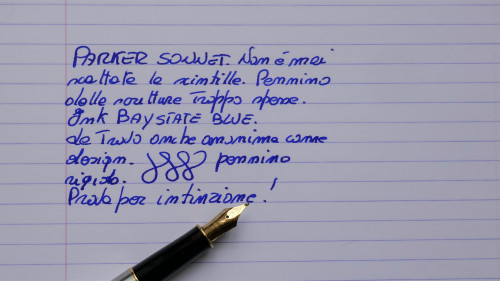 PARKER SONNET. Non è mai
scattata la scintilla. Pennino
dalla scrittura troppo spessa.
Ink BAYSTATE BLUE.
La trovo anche anonima come
design. pennino
rigido.
Prova per intinzione!